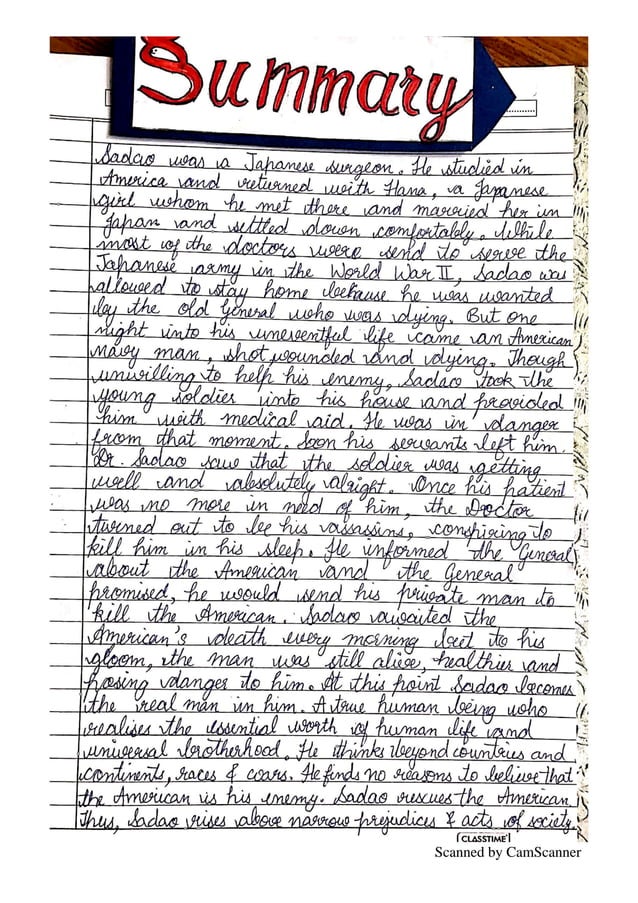 Summary
Sadao was a Japanese surgeon. He studied in
America and returned with Hana, a Japanese
girl whom he met there and married her in
Japan and settled down comfortably. While
most of the doctors were send to serve the
Japanese army in the World War II, Sadao was
allowed to stay home because he was wanted
by the old General who was dying. But one
night into his uneventful life came an American
Navy man, shot wounded and dying. Though
unwilling to help his enemy, Sadao took the
young soldier into his house and provided
him with medical aid. He was in danger
from that moment. Soon his servants left him.
Dr. Sadao saw that the soldier was getting
well and absolutely alright. Once his patient
was no more in need of him, the Doctor
turned out to be his assassins, conspiring to
kill him in his sleep. He informed the General
about the American and the General
promised, he would send his private man to
kill the American. Sadao awaited the
American's death every morning but to his
gloom, the man was still alive, healthier and
posing danger to him. At this point Sadao becomes
the real man in him. A true human being who
realises the essential worth of human life and
universal brotherhood. He thinks beyond countries and
continents, races & wars. He finds no reasons to believe that
the American is his enemy. Sadao rescues the American.
Thus, Sadao rises above narrow prejudices & acts of society.
CLASSTIME
Scanned by CamScanner